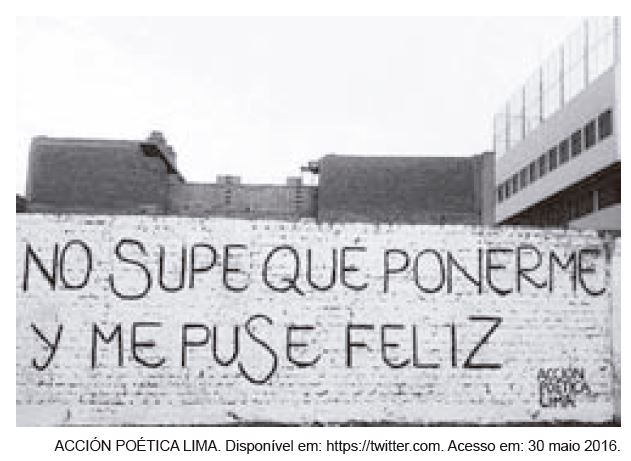 NO SUPE QUÉ PONERME
Y ME PUSE FELIZ
ACCIÓN
POÉTICA
LIMA
ACCIÓN POÉTICA LIMA. Disponível em: https://twitter.com. Acesso em: 30 maio 2016.